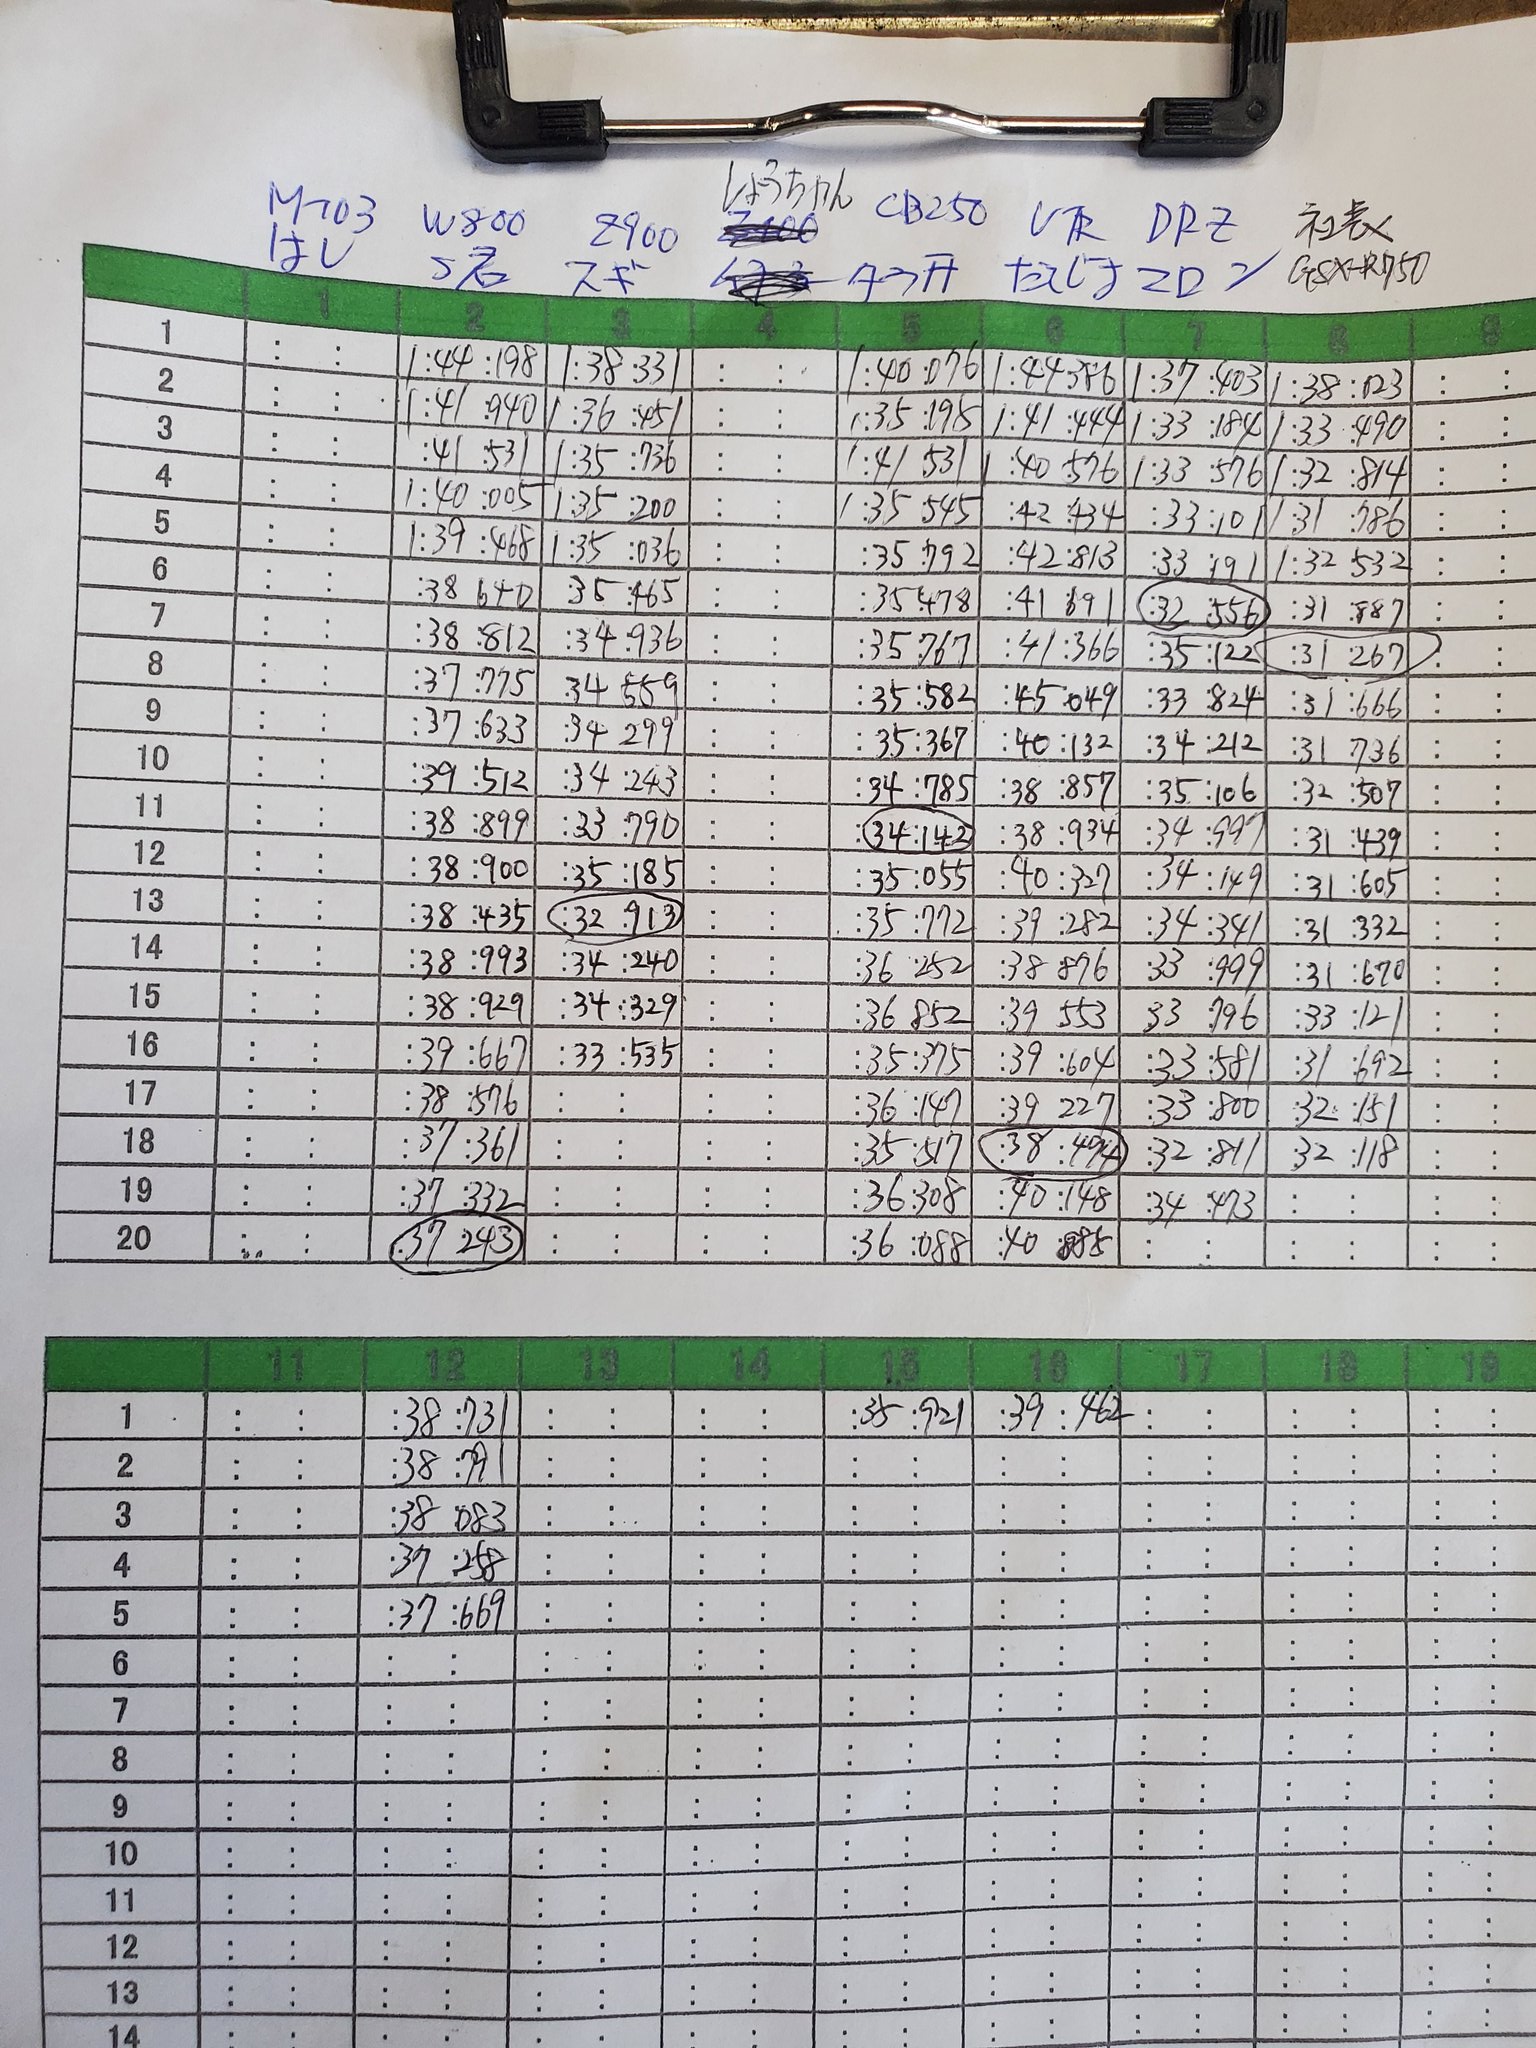 M703 W800 Z900 しょうちゃん CB250 VTR DRZ 社長
はし S君 スギ タつ井 たじま マロン GSX-R750
1 2 3 4 5 6 7 8 9
1 : : 1:44:198 1:38:331 : : 1:40:076 1:44 386 1:37:403 1:38:023 : :
2 : : 1:41:940 1:36:451 : : 1:35:195 1:41:444 1:33:184 1:33:490 : :
3 : : :41:531 1:35:736 : : 1:41:531 1:40:576 1:33:576 1:32:814 : :
4 : : 1:40:005 1:35:200 : : 1:35:545 :42:434 :33:101 1:31:786 : :
5 : : 1:39:468 1:35:036 : : :35:792 :42:813 :33:191 1:32:532 : :
6 : : :38 640 :35:465 : : :35:478 :41:691 :32:556 :31:887 : :
7 : : :38:812 :34:936 : : :35:767 :41:366 :35:122 :31 267 : :
8 : : :37:775 :34 559 : : :35:582 :45:049 :33:824 :31:666 : :
9 : : :37:633 :34 299 : : :35:367 :40:132 :34:212 :31 736 : :
10 : : :39:512 :34:243 : : :34:785 :38:857 :35:106 :32:507 : :
11 : : :38:899 :33:790 : : :34:142 :38:934 :34:997 :31:439 : :
12 : : :38:900 :35:185 : : :35:055 :40:327 :34:149 :31:605 : :
13 : : :38:435 :32 913 : : :35:772 :39:282 :34:341 :31:332 : :
14 : : :38:993 :34:240 : : :36 252 :38 876 :33:999 :31:670 : :
15 : : :38:929 :34:329 : : :36 852 :39 553 33 796 :33:121 : :
16 : : :39:667 :33:535 : : :35:375 :39:604 :33:581 :31:692 : :
17 : : :38:576 : : : : :36:147 :39 227 :33:800 :32:151 : :
18 : : :37:361 : : : : :35:517 :38:494 :32:811 :32:118 : :
19 : : :37:332 : : : : :36:308 :40:148 :34:473 : : : :
20 : : :37 243 : : : : :36:088 :40 : : : : : :
11 12 13 14 15 16 17 18 19
1 : : :38:731 : : : : :35:921 :39:462 : : : : : :
2 : : :38:791 : : : : : : : : : : : : : :
3 : : :38 083 : : : : : : : : : : : : : :
4 : : :37:258 : : : : : : : : : : : : : :
5 : : :37:669 : : : : : : : : : : : : : :
6 : : : : : : : : : : : : : : : : : :
7 : : : : : : : : : : : : : : : : : :
8 : : : : : : : : : : : : : : : : : :
9 : : : : : : : : : : : : : : : : : :
10 : : : : : : : : : : : : : : : : : :
11 : : : : : : : : : : : : : : : : : :
12 : : : : : : : : : : : : : : : : : :
13 : : : : : : : : : : : : : : : : : :
14 : : : : : : : : : : : : : : : : : :